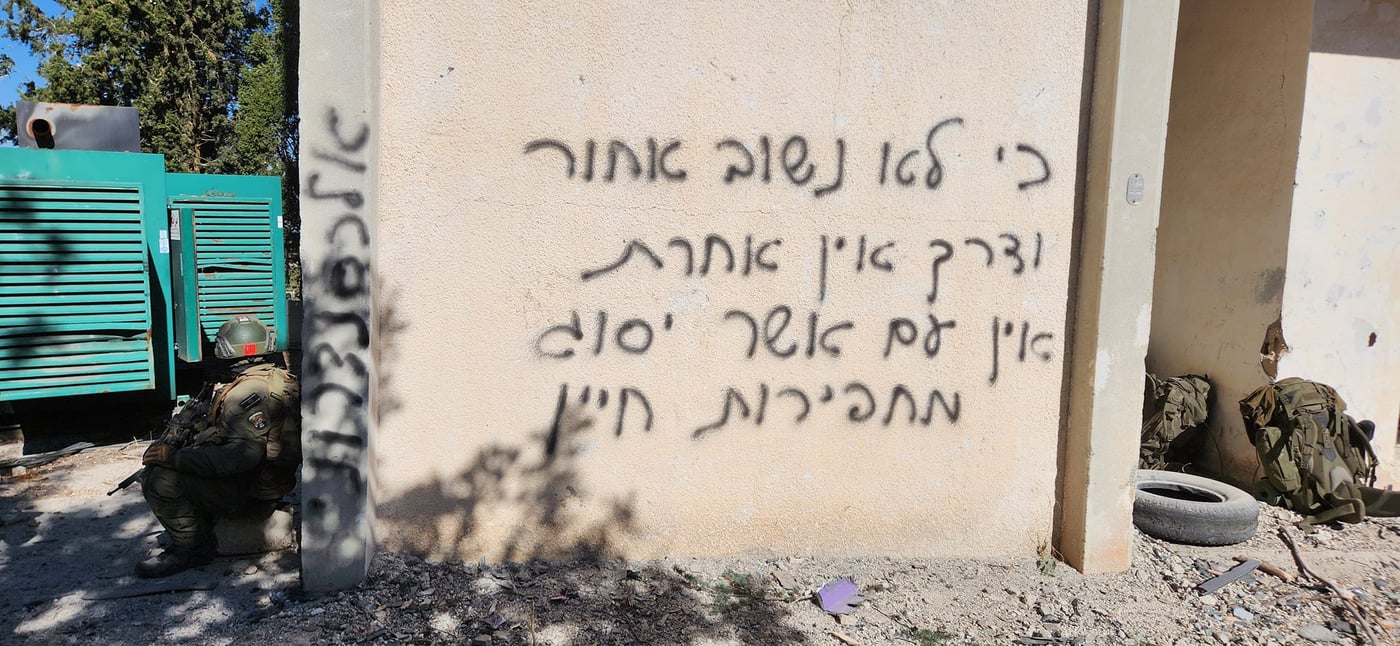 כי לא נשוב אחור
ודרך אין אחרת
אין עם אשר יסוג
מחפירות חייו
אלכסנדרוני